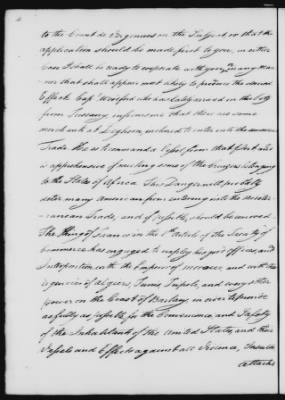 to the Count de Vergennes on the Subject or that the
application should be made first to you, in either
Case I shall be ready to cooperate with you, in any Man-
-ner that shall appear most likely to produce the desired
Effect. Capt. who has lately arrived in the City
from Tuscany, informs me that there are some
merchants at Leghorn, inclined to enter into the American
Trade He is to command a Vessel from that Port but
is apprehensive of meeting some of the Cruizers belonging
to the States of Africa This Danger will probably
deter many Americans from entering into the Mediter
-ranean Trade, and if possible, should be removed.
The King of France in the 8th Article of the Treaty of
Commerce has engaged to employ his good offices, and
Interposition with the Emperor of Morocco, and with the
regencies of Algiers, Tunis, Tripoli, and every other
power on the Coast of Barbary, in order to provide
as fully as possible for the Convenience and Safety
of the Inhabitants of the United States, and their
Vessels and Effects against all Violence, Insults
attacks